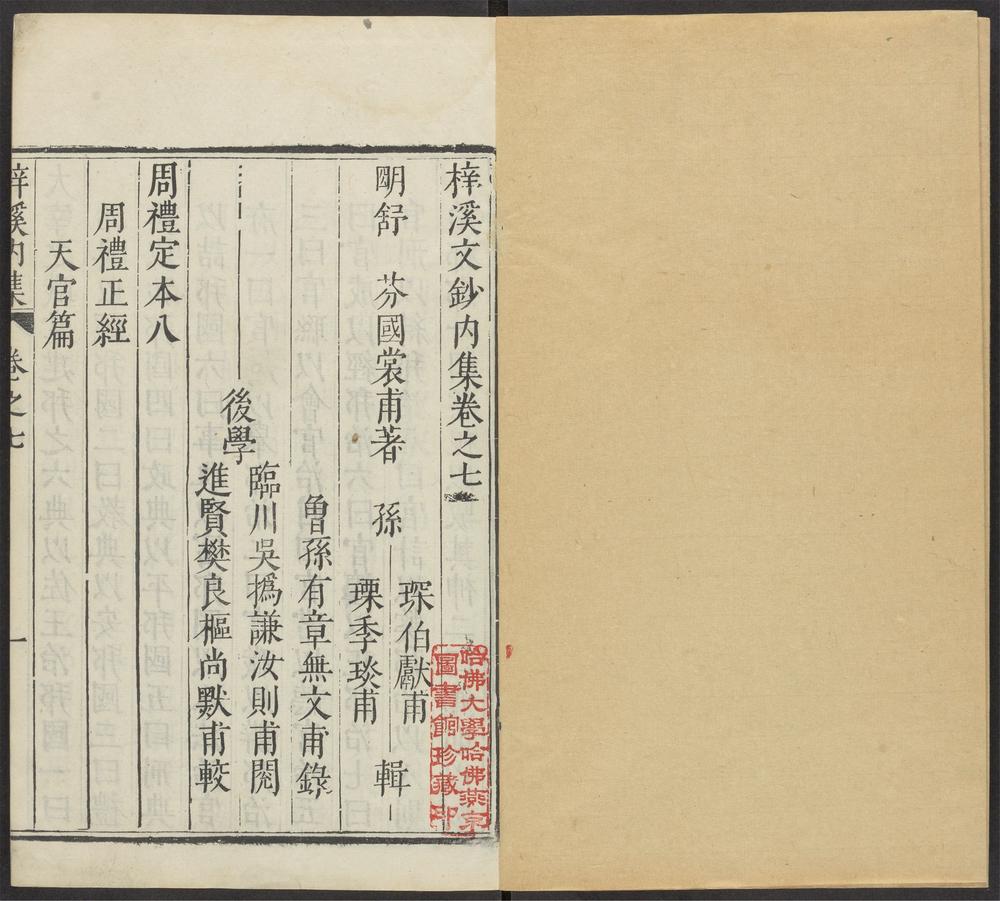 梓溪文鈔内集卷之七
明舒　芬國裳甫著　孫
琛伯獻甫
瑮季琰甫
輯
曾孫有章無文甫錄
後學
臨川吳撝謙汝則甫閱
進賢樊良樞尚默甫較
周禮定本八
周禮正經
天官篇
梓溪内集
卷之七
一
哈佛大學哈佛燕京
圖書館珍藏印